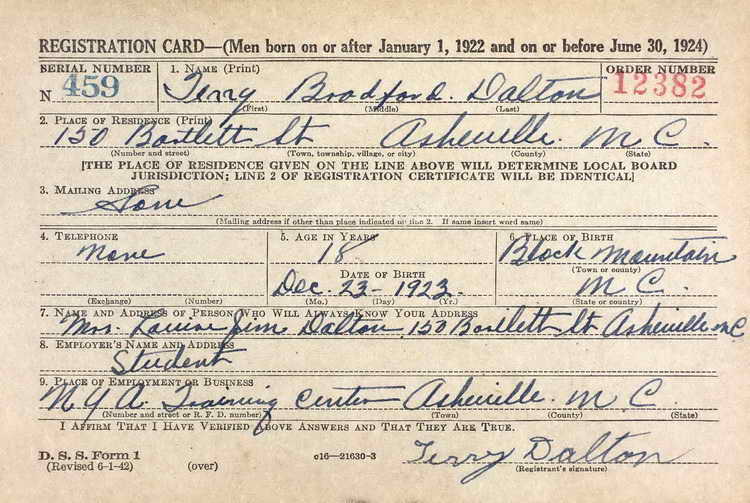 REGISTRATION CARD—(Men born on or after January 1, 1922 and on or before June 30, 1924)
SERIAL NUMBER 1. NAME (Print) ORDER NUMBER
N 459 Terry Bradford Dalton 12382
(First) (Middle) (Last)
2. PLACE OF RESIDENCE (Print)
150 Bartlett St Asheville N C.
(Number and street) (Town, township, village, or city) (County) (State)
[THE PLACE OF RESIDENCE GIVEN ON THE LINE ABOVE WILL DETERMINE LOCAL BOARD
JURISDICTION; LINE 2 OF REGISTRATION CERTIFICATE WILL BE IDENTICAL]
3. MAILING ADDRESS
Same
(Mailing address if other than place indicated on line 2. If same insert word same)
4. TELEPHONE 5. AGE IN YEARS 6. PLACE OF BIRTH
None 18 Black Mountain
DATE OF BIRTH (Town or county)
Dec. 23 - 1923 N C.
(Exchange) (Number) (Mo.) (Day) (Yr.) (State or country)
7. NAME AND ADDRESS OF PERSON WHO WILL ALWAYS KNOW YOUR ADDRESS
Mrs. Dalton 150 Bartlett St Asheville N C
8. EMPLOYER'S NAME AND ADDRESS
Student
9. PLACE OF EMPLOYMENT OR BUSINESS
N Y A. Training Center Asheville. N. C.
(Number and street or R. F. D. number) (Town) (County) (State)
I AFFIRM THAT I HAVE VERIFIED ABOVE ANSWERS AND THAT THEY ARE TRUE.
D. S. S. Form 1 c16—21630-3 Terry Dalton
(Revised 6-1-42) (over) (Registrant's signature)